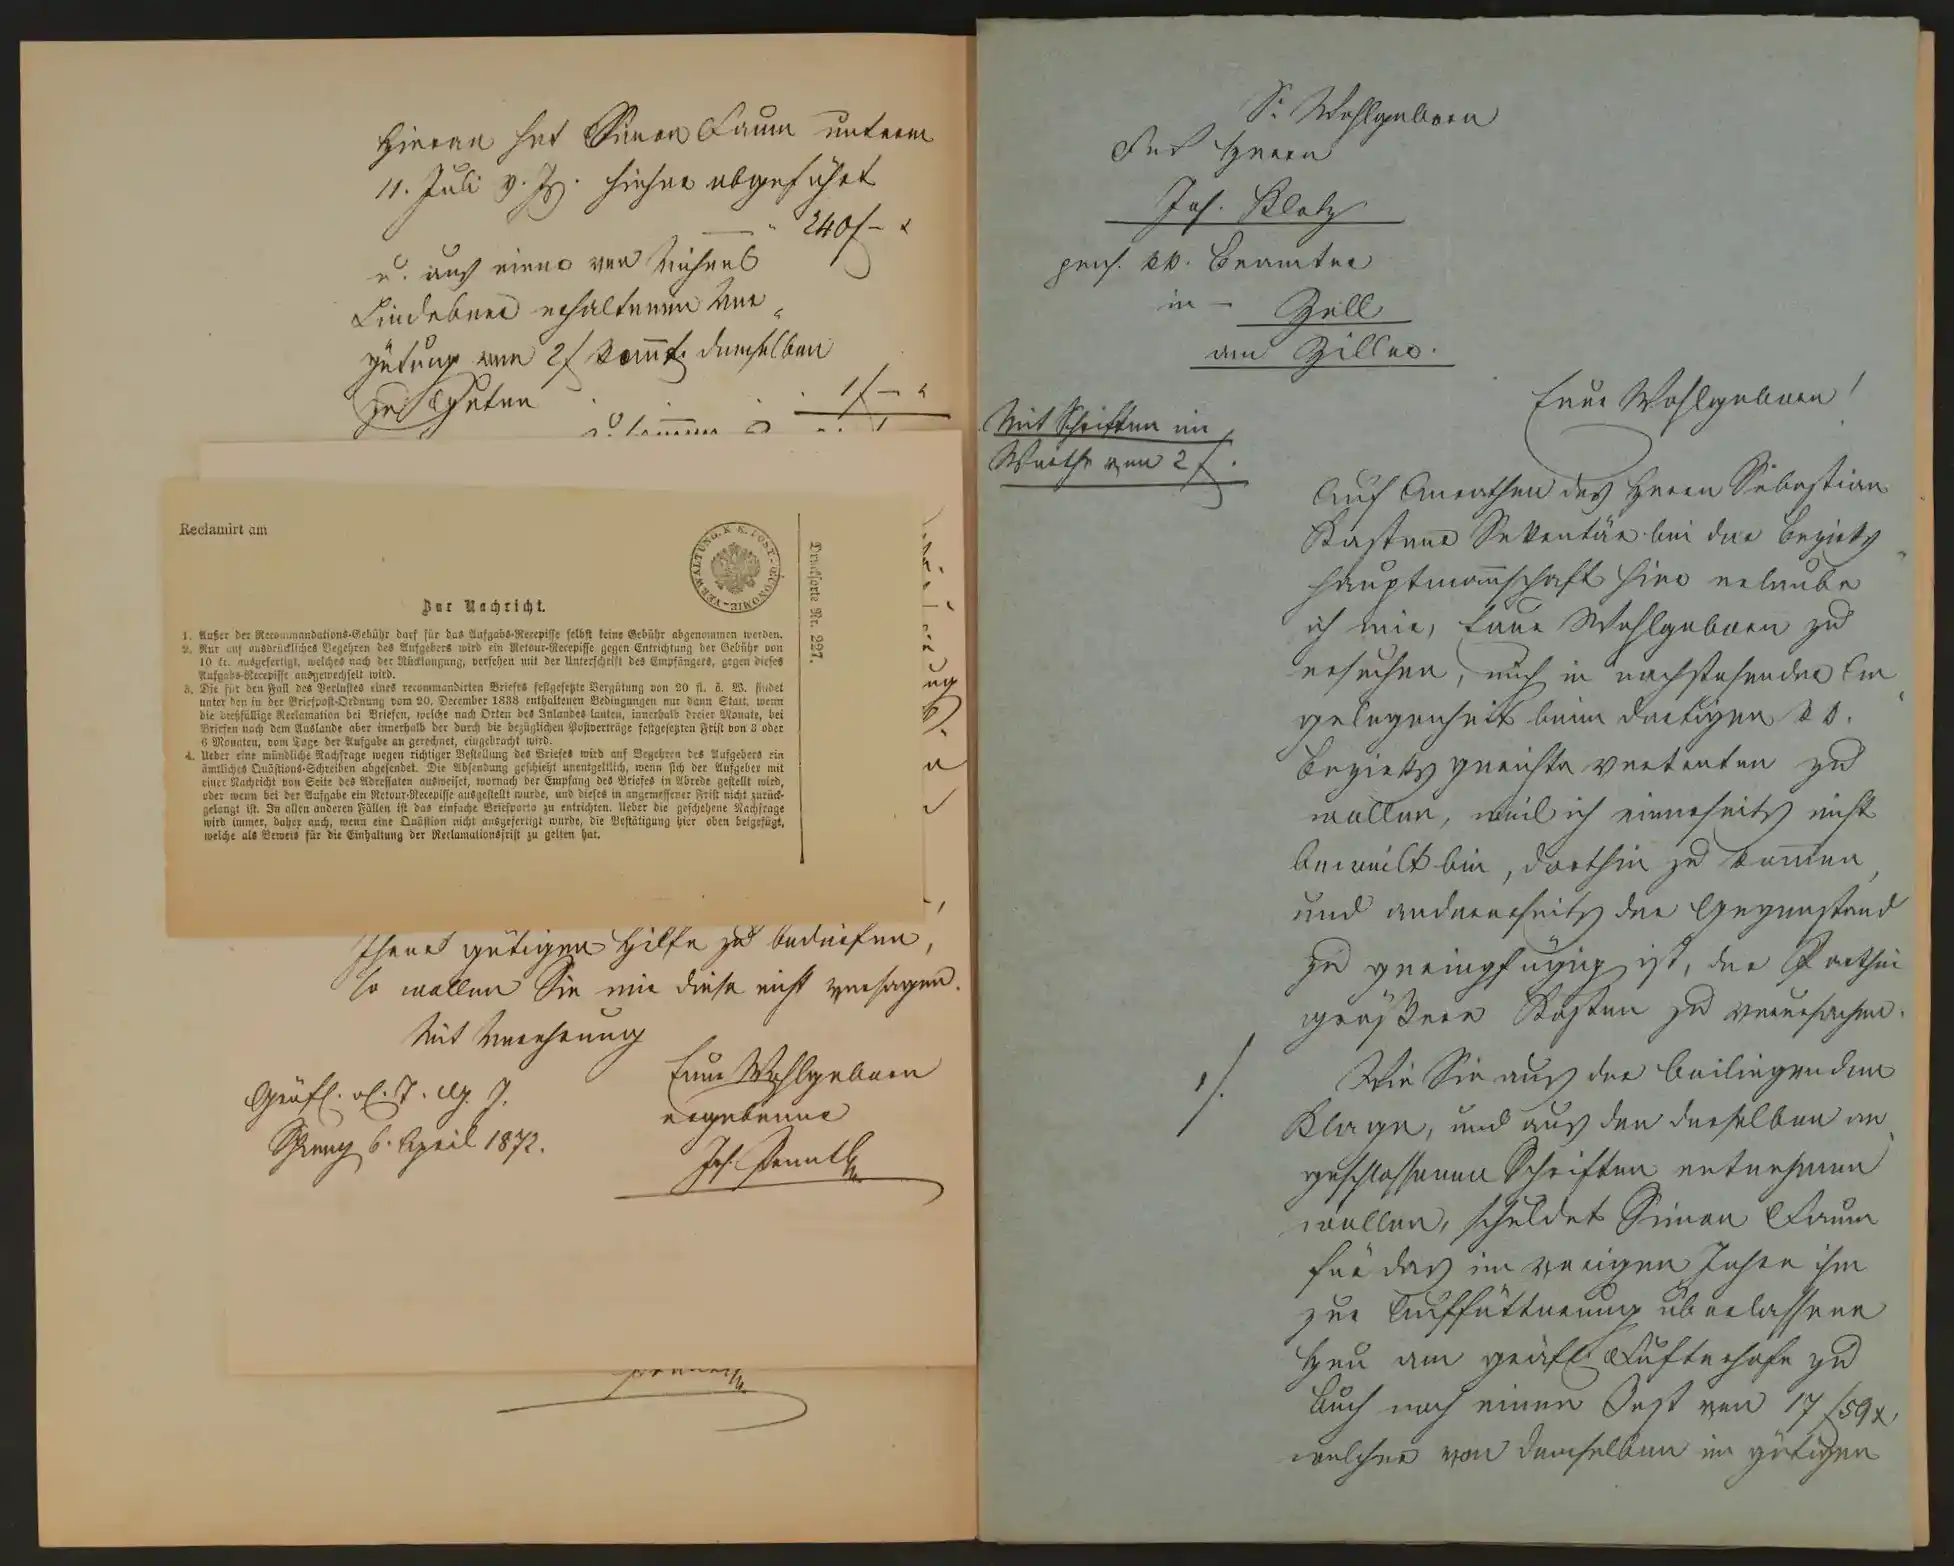 Hievon hat Simon Daum unterm
11. Juli v. Js. hieher abgeführt
240 f – x
u. aus einer von Michael
Lindebner erhaltenen Ver„
gütung von 2 f kommt demselben
zu Guten
1 f – „
Reclamirt am
K. K. POST-ÖCONOMIE-VERWALTUNG.
Drucksorte Nr. 227.
Zur Nachricht.
1. Außer der Recommandations-Gebühr darf für das Aufgabs-Recepisse selbst keine Gebühr abgenommen werden.
2. Nur auf ausdrückliches Begehren des Aufgebers wird ein Retour-Recepisse gegen Entrichtung der Gebühr von
10 kr. ausgefertigt, welches nach der Rücklangung, versehen mit der Unterschrift des Empfängers, gegen dieses
Aufgabs-Recepisse ausgewechselt wird.
3. Die für den Fall des Verlustes eines recommandirten Briefes festgesetzte Vergütung von 20 fl. ö. W. findet
unter den in der Briefpost-Ordnung vom 20. December 1838 enthaltenen Bedingungen nur dann Statt, wenn
die dießfällige Reclamation bei Briefen, welche nach Orten des Inlandes lauten, innerhalb dreier Monate, bei
Briefen nach dem Auslande aber innerhalb der durch die bezüglichen Postverträge festgesetzten Frist von 3 oder
6 Monaten, vom Tage der Aufgabe an gerechnet, eingebracht wird.
4. Ueber eine mündliche Nachfrage wegen richtiger Bestellung des Briefes wird auf Begehren des Aufgebers ein
ämtliches Quästions-Schreiben abgesendet. Die Absendung geschieht unentgeltlich, wenn sich der Aufgeber mit
einer Nachricht von Seite des Adressaten ausweiset, wornach der Empfang des Briefes in Abrede gestellt wird,
oder wenn bei der Aufgabe ein Retour-Recepisse ausgestellt wurde, und dieses in angemessener Frist nicht zurück-
gelangt ist. In allen anderen Fällen ist das einfache Briefporto zu entrichten. Ueber die geschehene Nachfrage
wird immer, daher auch, wenn eine Quästion nicht ausgefertigt wurde, die Bestätigung hier oben beigefügt,
welche als Beweis für die Einhaltung der Reclamationsfrist zu gelten hat.
Ihrer gütigen Hilfe zu bedürfen,
so wollen Sie mir diese nicht versagen.
Mit Verehrung
Euer Wohlgeboren
ergebener
Gräfl.
6. April 1872.
Sr. Wohlgeboren
Des Herrn
Jos. Klotz
pens. kk. Beamter
in – Zell
am Ziller.
Euer Wohlgeboren!
Mit Schriften im
Werthe von 2 f.
Auf Anrathen des Herrn Sebastian
Kastner Sekretär bei der Bezirks„
hauptmannschaft hier erlaube
ich mir, Euer Wohlgeboren zu
ersuchen, mich in nachstehender An„
gelegenheit beim dortigen kk.
Bezirksgerichte vertreten zu
wollen, weil ich einerseits nicht
beeilt bin, dorthin zu kommen,
und andererseits der Gegenstand
zu geringfügig ist, der Parthei
größere Kosten zu verursachen.
1/.
Wie Sie aus der beiliegenden
Klage, und aus den derselben an„
geschlossenen Schriften entnehmen
wollen, schuldet Simon Daum
für das im vorigen Jahre ihm
zur Auffütterung überlassene
Heu am gräfl. zu
Buch noch einen Rest von 17 f 59 x,
welcher von demselben im gütigen